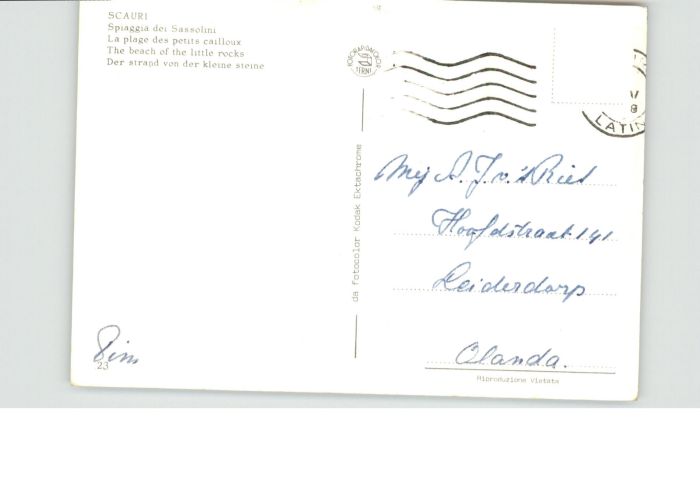 SCAURI
Spiaggia dei Sassolini
La plage des petits cailloux
The beach of the little rocks
Der strand von der kleine steine
TERNI
LATIN
da fotocolor Kodak Ektachrome
Mej A. J. v. 't Riet
Hoofdstraat 141
Leiderdorp
Olanda.
Riproduzione vietata
Pim
23